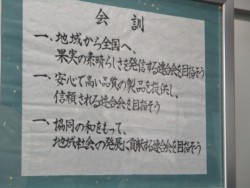 会訓
一、地域から全国へ、
果実の素晴らしさを発信する連合会を目指そう
一、安心で高い品質の製品を提供し、
信頼される連合会を目指そう
一、協同の和をもって、
地域社会の発展に貢献する連合会を目指そう